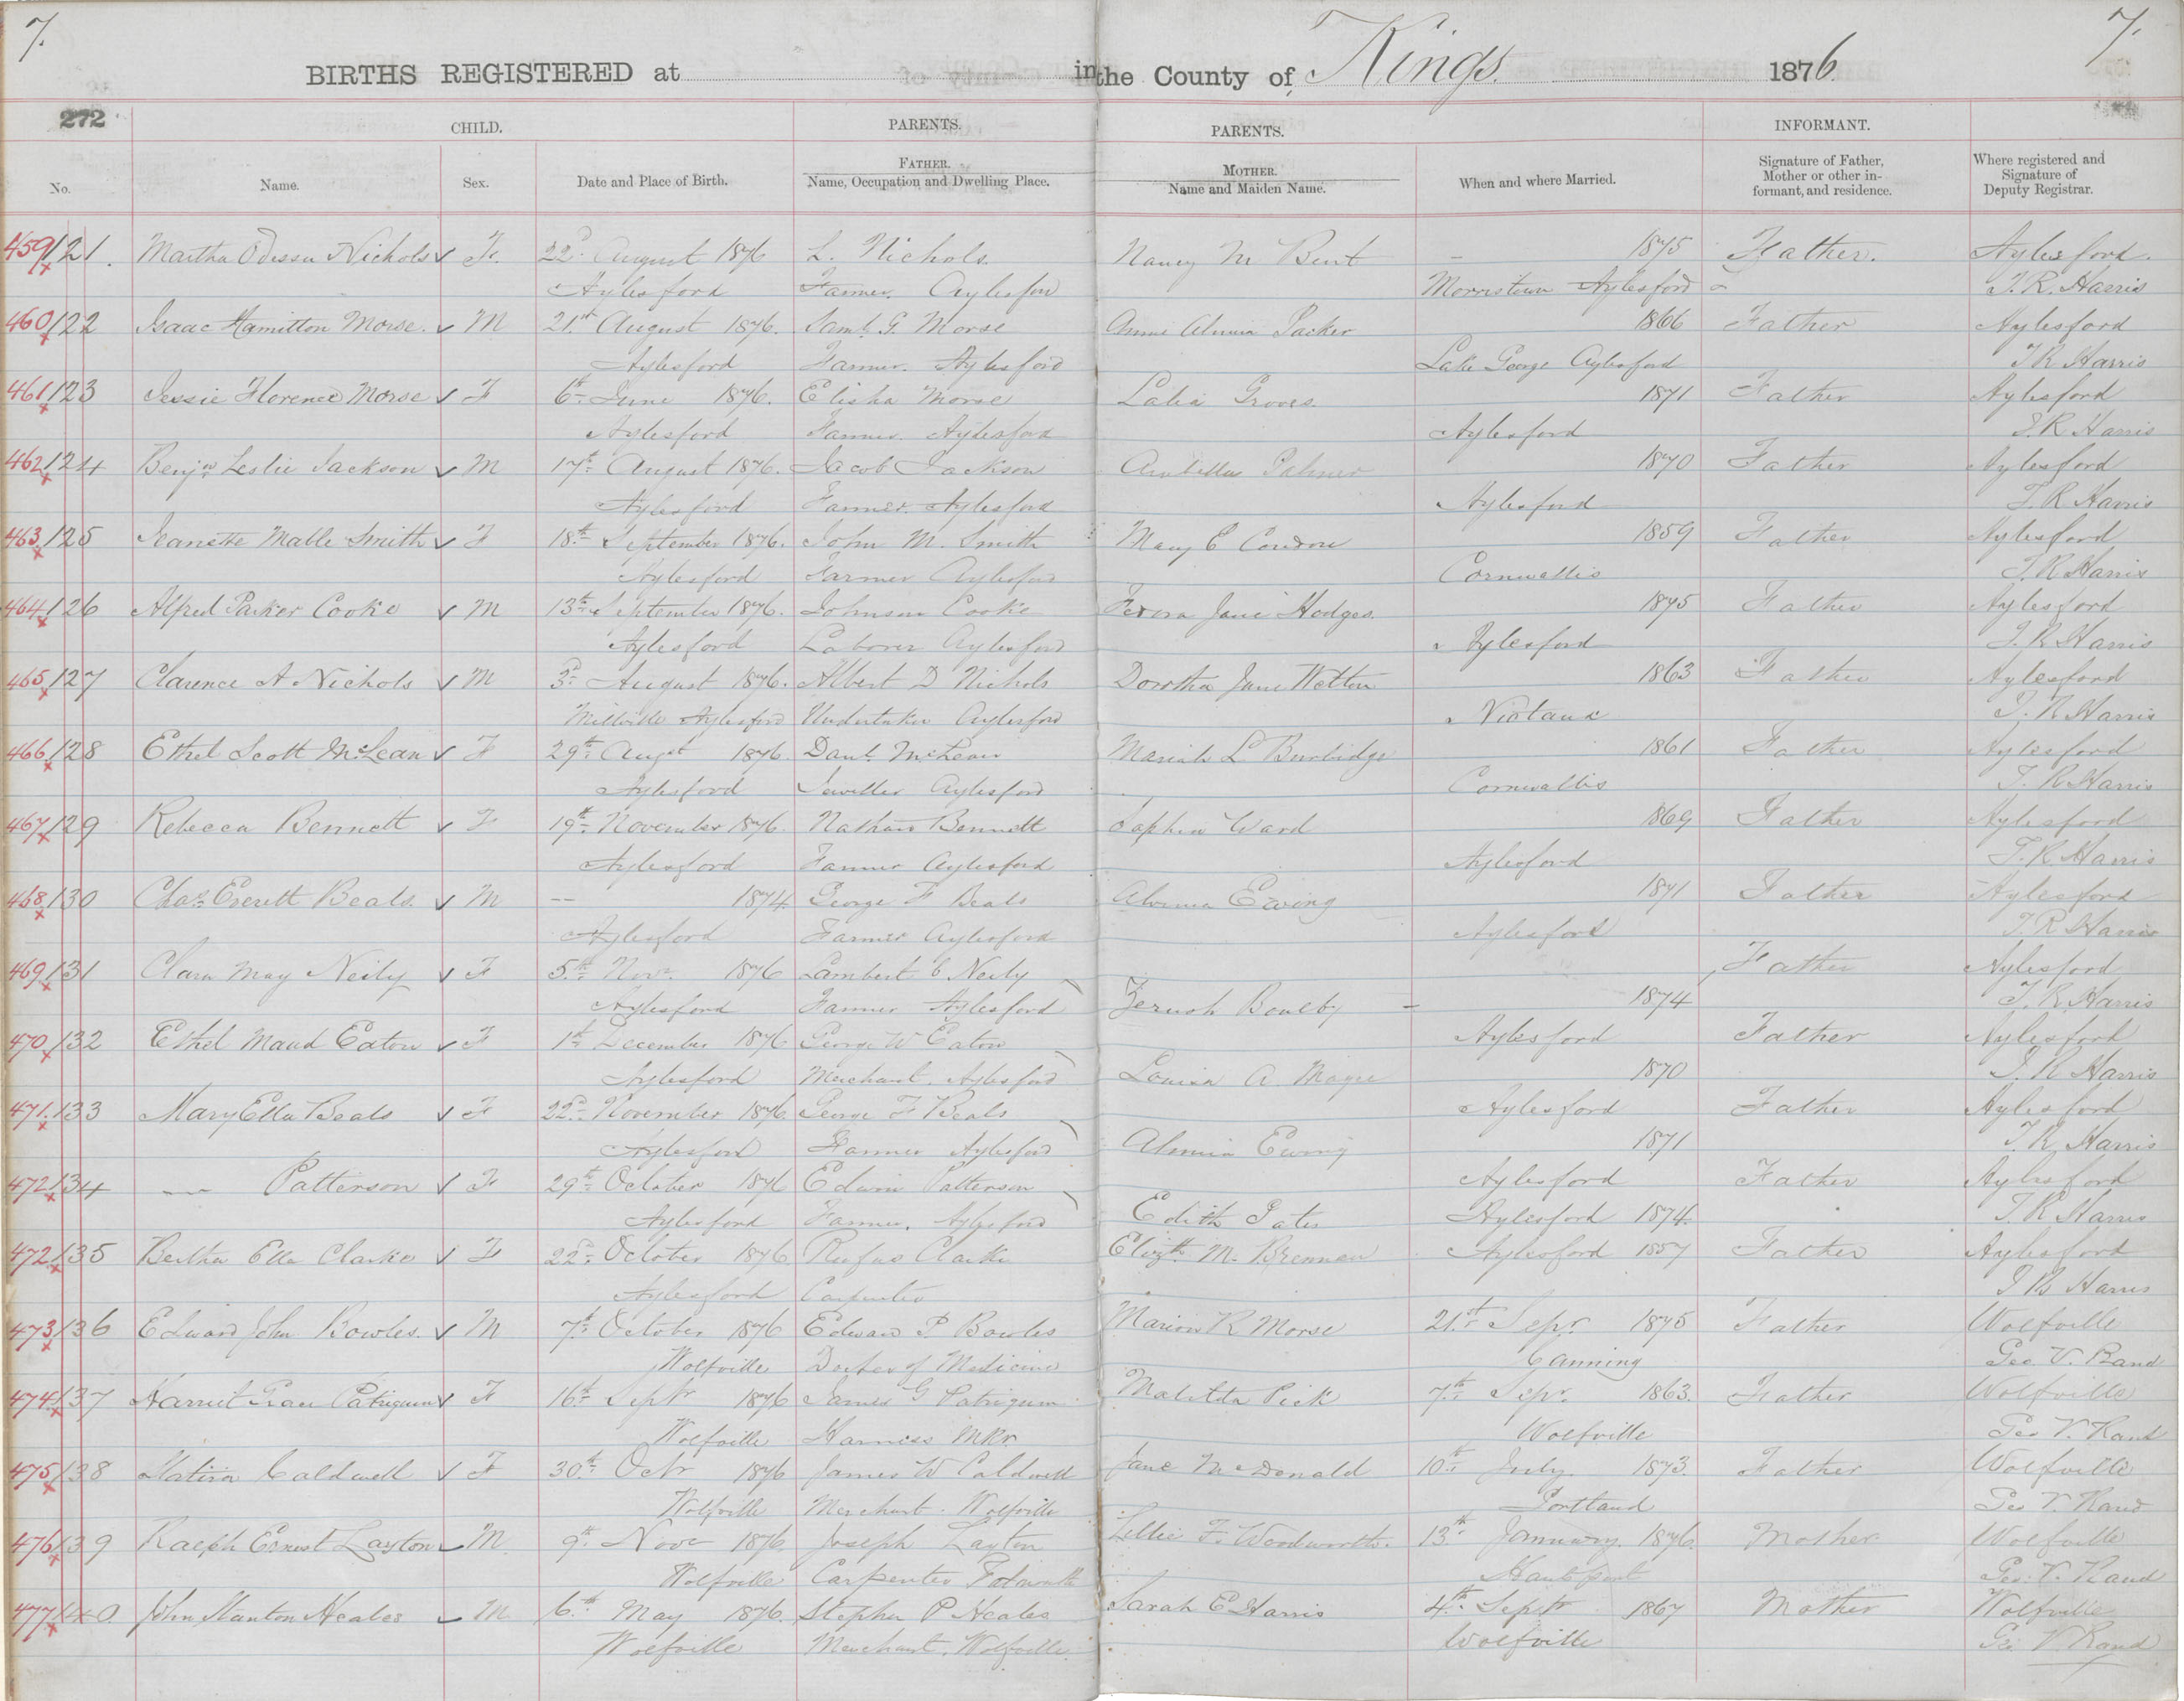 7. 7.
BIRTHS REGISTERED at in the County of Kings. 1876
272 CHILD. PARENTS. PARENTS. INFORMANT.
No. Name. Sex. Date and Place of Birth. FATHER. Name, Occupation and Dwelling Place. MOTHER. Name and Maiden Name. When and where Married. Signature of Father, Mother or other informant, and residence. Where registered and Signature of Deputy Registrar.
459 121. Martha Odessa Nichols F. 22d August 1876 L. Nichols. Nancy M Bent – 1875 Father. Aylesford.
Aylesford Farmer. Aylesford Morristown Aylesford T. R. Harris
460 122 Isaac Hamilton Morse. M 21st August 1876. Saml. G. Morse Annie Parker 1866 Father Aylesford
Aylesford Farmer. Aylesford Lake George Aylesford T R Harris
461 123 Jessie Florence Morse F 6th June 1876. Elisha Morse Groves. 1871 Father Aylesford
Aylesford Farmer. Aylesford Aylesford T. R Harris
462 124 Benjn. Leslie Jackson M 17th August 1876. Jacob Jackson Arabella Palmer 1870 Father Aylesford
Aylesford Farmer. Aylesford Aylesford T. R Harris
463 125 Jeanette Mable Smith F 18th September 1876. John M. Smith Mary E 1859 Father Aylesford
Aylesford Farmer Aylesford Cornwallis T. R Harris
464 126 Alfred Parker Cooke M 13th September 1876. Johnson Cooke Jane Hodges. 1875 Father Aylesford
Aylesford Laborer Aylesford Aylesford T. R Harris
465 127 Clarence A Nichols M 3d August 1876. Albert D Nichols Dorotha Jane 1863 Father Aylesford
Millville Aylesford Undertaker Aylesford Nictaux T. R Harris
466 128 Ethel Scott McLean F 29th Augst 1876. Danl. McLean Mariah L Burbidge 1861 Father Aylesford
Aylesford Jeweller Aylesford Cornwallis T. R Harris
467 129 Rebecca Bennett F 19th November 1876. Nathan Bennett Ward 1869 Father Aylesford
Aylesford Farmer Aylesford Aylesford T. R Harris
468 130 Chas. Everett Beals. M –– 1874 George F Beals Ewing 1871 Father Aylesford
Aylesford Farmer Aylesford Aylesford T. R Harris
469 131 Clara May Neily F 5th Novr. 1876 Lambert C Neily Father Aylesford
Aylesford Farmer Aylesford Zeruah Bowlby – 1874 T. R. Harris
470 132 Ethel Maud Eaton F 1st December 1876 George W Eaton Aylesford Father Aylesford
Aylesford Merchant. Aylesford Louisa A. Magee 1870 T. R Harris
471. 133 Mary Ella Beals F 22d November 1876 George F Beals Aylesford Father Aylesford
Aylesford Farmer Aylesford Almira Ewing 1871 T. R. Harris
472 134 –– Patterson F 29th October 1876 Edwin Patterson Aylesford Father Aylesford
Aylesford Farmer. Aylesford Edith Aylesford 1874. T. R Harris
472 135 Bertha Ella Clarke F 22d October 1876 Rufus Clarke Elizth. M. Brennan Aylesford 1857 Father Aylesford
Aylesford Carpenter T R Harris
473 136 Edward John Bowles. M 7th October 1876 Edward P Bowles Marion R Morse 21st Sepr. 1875 Father Wolfville
Wolfville Doctor of Medicine Canning Geo. V. Rand
474 137 Harriet Grace Patriquin F 16th Septr 1876 James G Patriquin Matilda Pick 7th Sepr. 1863. Father Wolfville
Wolfville Harness Mkr. Wolfville Geo V. Rand
475 138 Statira Caldwell F 30th Octr 1876 James W Caldwell Jane McDonald 10th July 1873. Father Wolfville
Wolfville Merchant. Wolfville Portland Geo V. Rand
476 139 Ralph Ernest Layton M 9th Novr 1876. Joseph Layton Lillie F. Woodworth. 13th January 1876. Mother Wolfville
Wolfville Carpenter Falmouth Hantsport Geo. V. Rand
477 140. John Stanton Heales M 6th May 1876. Stephen P Heales Sarah E Harris 4th Septr 1867 Mother Wolfville
Wolfville Merchant. Wolfville. Wolfville Geo V. Rand